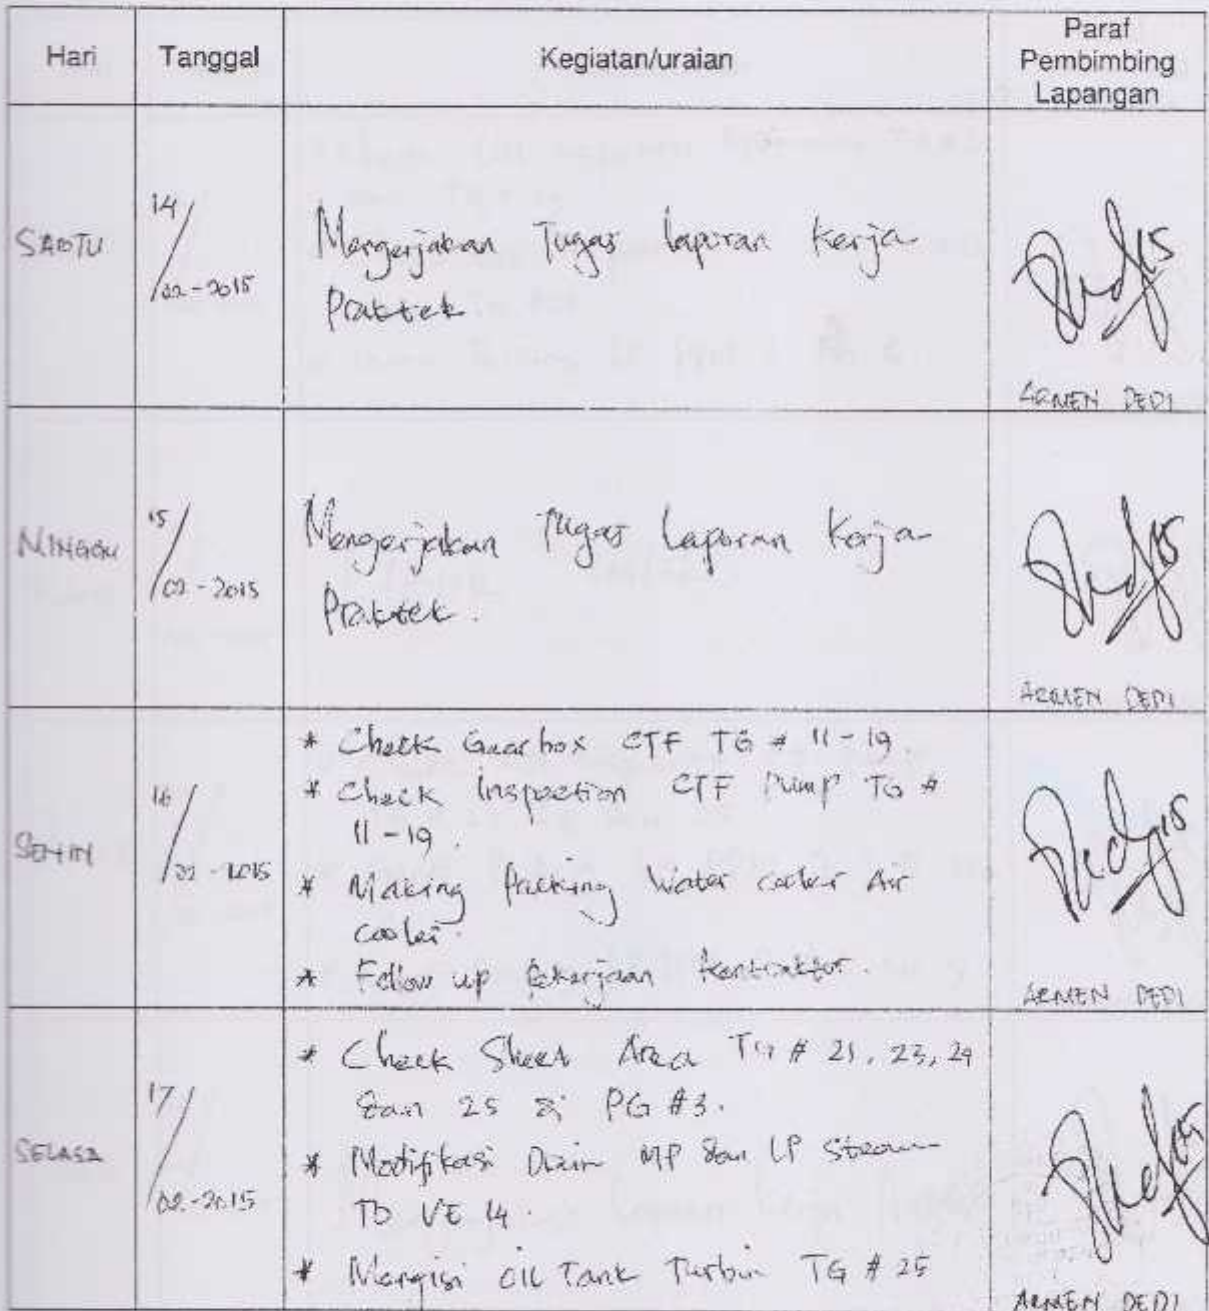 Hari Tanggal Kegiatan/uraian Paraf Pembimbing Lapangan
SABTU 14/02-2015
Mengerjakan Tugas laporan Kerja
Praktek
ARMEN DEDI
MINGGU 15/02-2015
Mengerjakan Tugas Laporan Kerja
Praktek.
ARMEN DEDI
SENIN 16/02-2015
* Check Gearbox CTF TG # 11-19
* Check Inspection CTF Pump TG #
11-19.
* Making Packing Water cooler Air
cooler.
* Follow up Pekerjaan Kontraktor.
ARMEN DEDI
SELASA 17/02-2015
* Check Sheet Area TG # 21, 23, 24
dan 25 di PG #3.
* Modifikasi Drain MP dan LP Steam
TO VE 14.
* Mengisi Oil Tank Turbin TG # 25
ARMEN DEDI